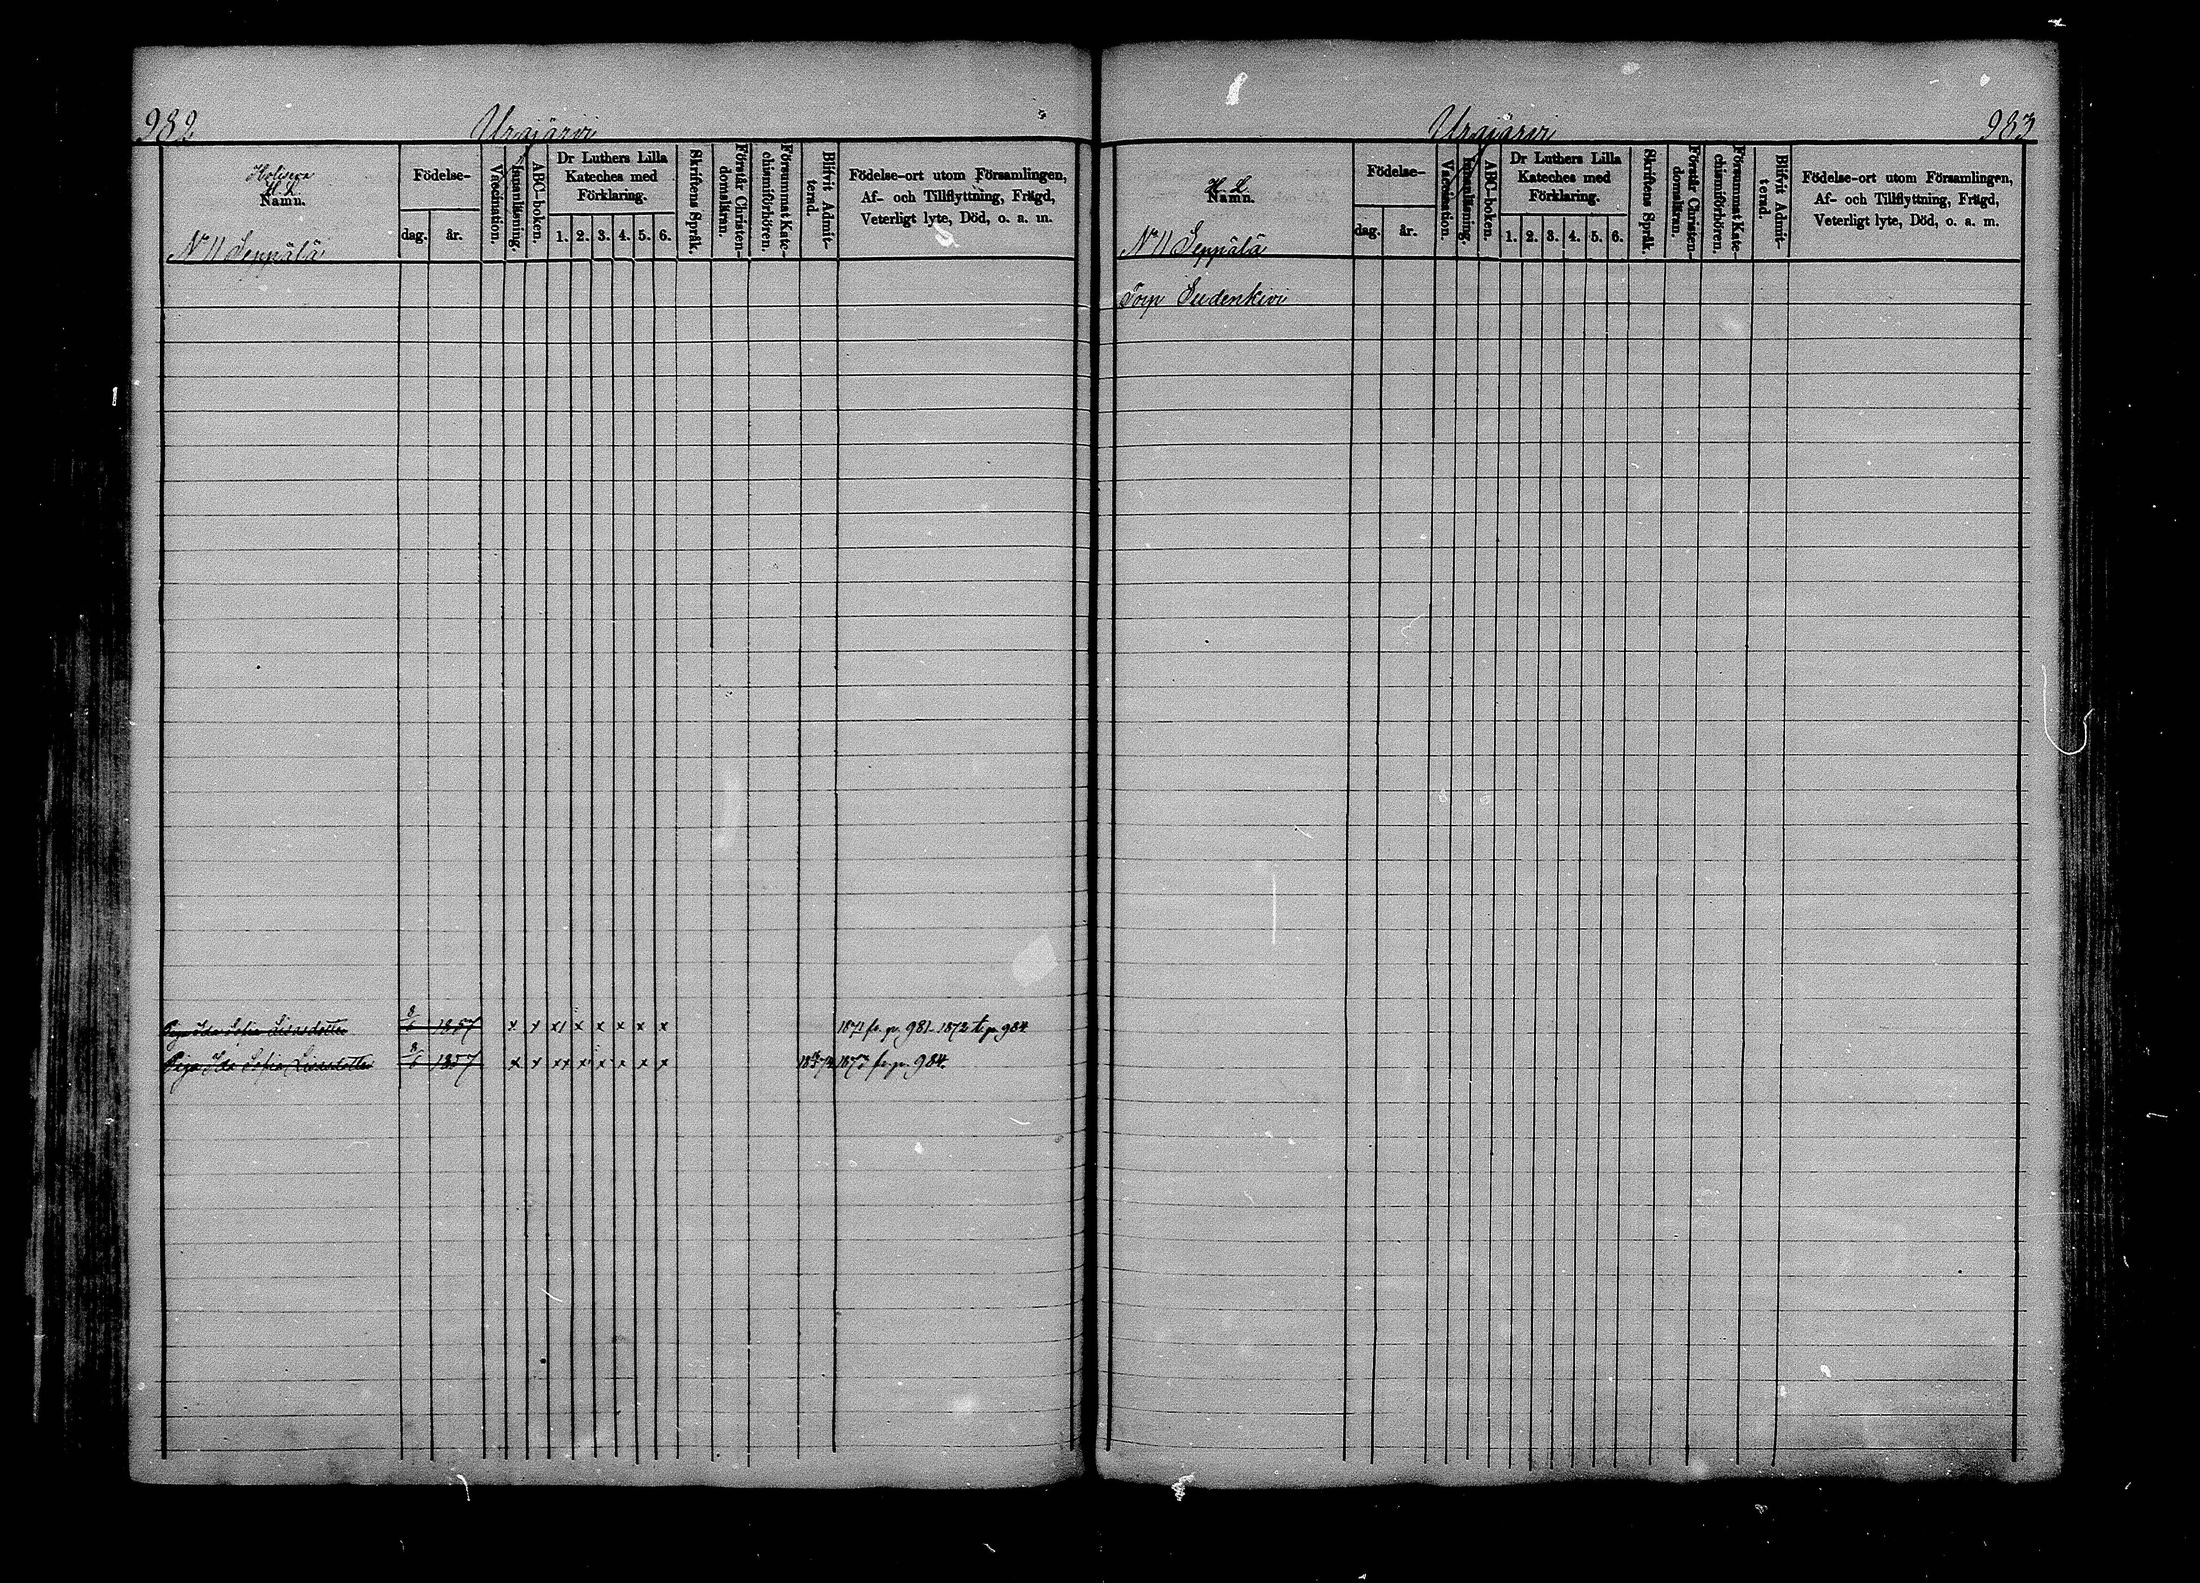 982
Urajärvi
Namn.
Födelse-
dag.
år.
Vaccination.
Innanläsning.
ABC-boken.
Dr Luthers Lilla
Kateches med
Förklaring.
1. 2. 3. 4. 5. 6.
Skriftens Språk.
Förstår Christen-
domsläran.
Försummat Kate-
chismiförhören.
Blifvit Admit-
terad.
Födelse-ort utom Församlingen,
Af- och Tillflyttning, Frägd,
Veterligt lyte, Död, o. a. m.
No 11 Seppälä
Piga Ida Sofia Lisasdotter 8/6 1857 x x x1 x x x x x 1871 fr. p. 981 - 1872 t. p. 984
Piga Ida Sofia Lisasdotter 8/6 1857 x x xx x x x x x 1873 fr. p. 984.
Urajärvi
983
Namn.
Födelse-
dag.
år.
Vaccination.
Innanläsning.
ABC-boken.
Dr Luthers Lilla
Kateches med
Förklaring.
1. 2. 3. 4. 5. 6.
Skriftens Språk.
Förstår Christen-
domsläran.
Försummat Kate-
chismiförhören.
Blifvit Admit-
terad.
Födelse-ort utom Församlingen,
Af- och Tillflyttning, Frägd,
Veterligt lyte, Död, o. a. m.
No 11 Seppälä
Torp Sudenkivi